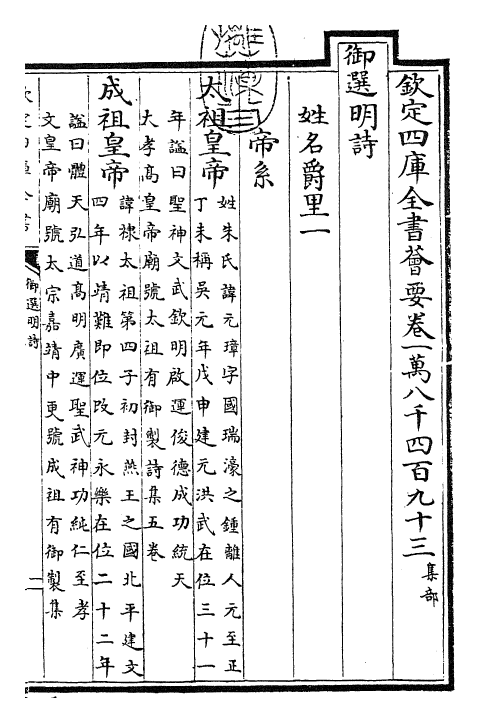 欽定四庫全書薈要卷一萬八千四百九十三 集部
御選明詩
姓名爵里一
帝系
太祖皇帝 姓朱氏諱元璋字國瑞濠之鍾離人元至正
丁未稱吳元年戊申建元洪武在位三十一
年諡曰聖神文武欽明啟運俊德成功統天
大孝髙皇帝廟號太祖有御製詩集五卷
成祖皇帝 諱棣太祖第四子初封燕王之國北平建文
四年以靖難即位改元永樂在位二十二年
諡曰體天弘道髙明廣運聖武神功純仁至孝
文皇帝廟號太宗嘉靖中更號成祖有御製集
御選明詩